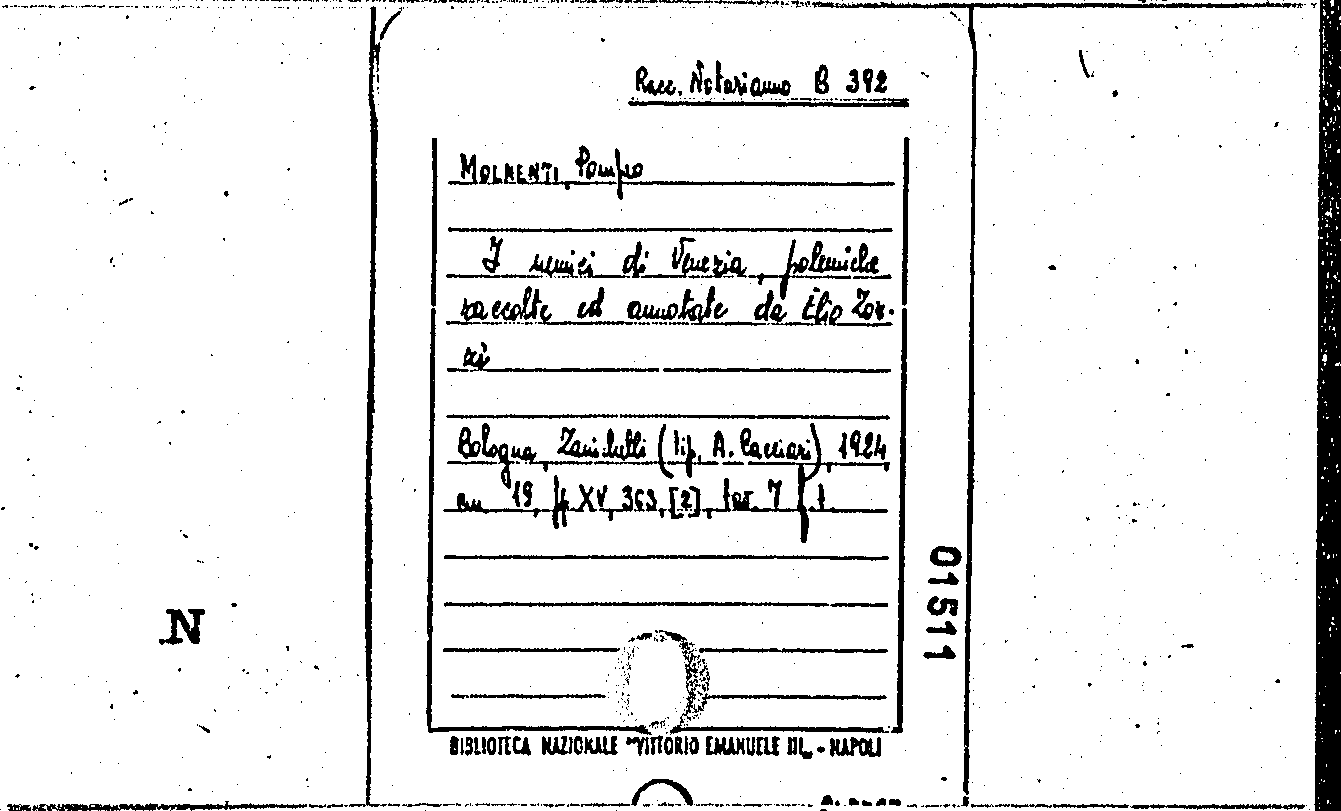 Racc. Notarianno B 392
MOLMENTI, Pompeo
I nemici di Venezia, polemiche
raccolte ed annotate da Elio Zor-
zi
Bologna, Zanichelli (tip. A. Cacciari), 1924,
cm 19, pp XV, 363, [2], tav. 7 f. t.
01511
N
BIBLIOTECA NAZIONALE "VITTORIO EMANUELE III„ - NAPOLI